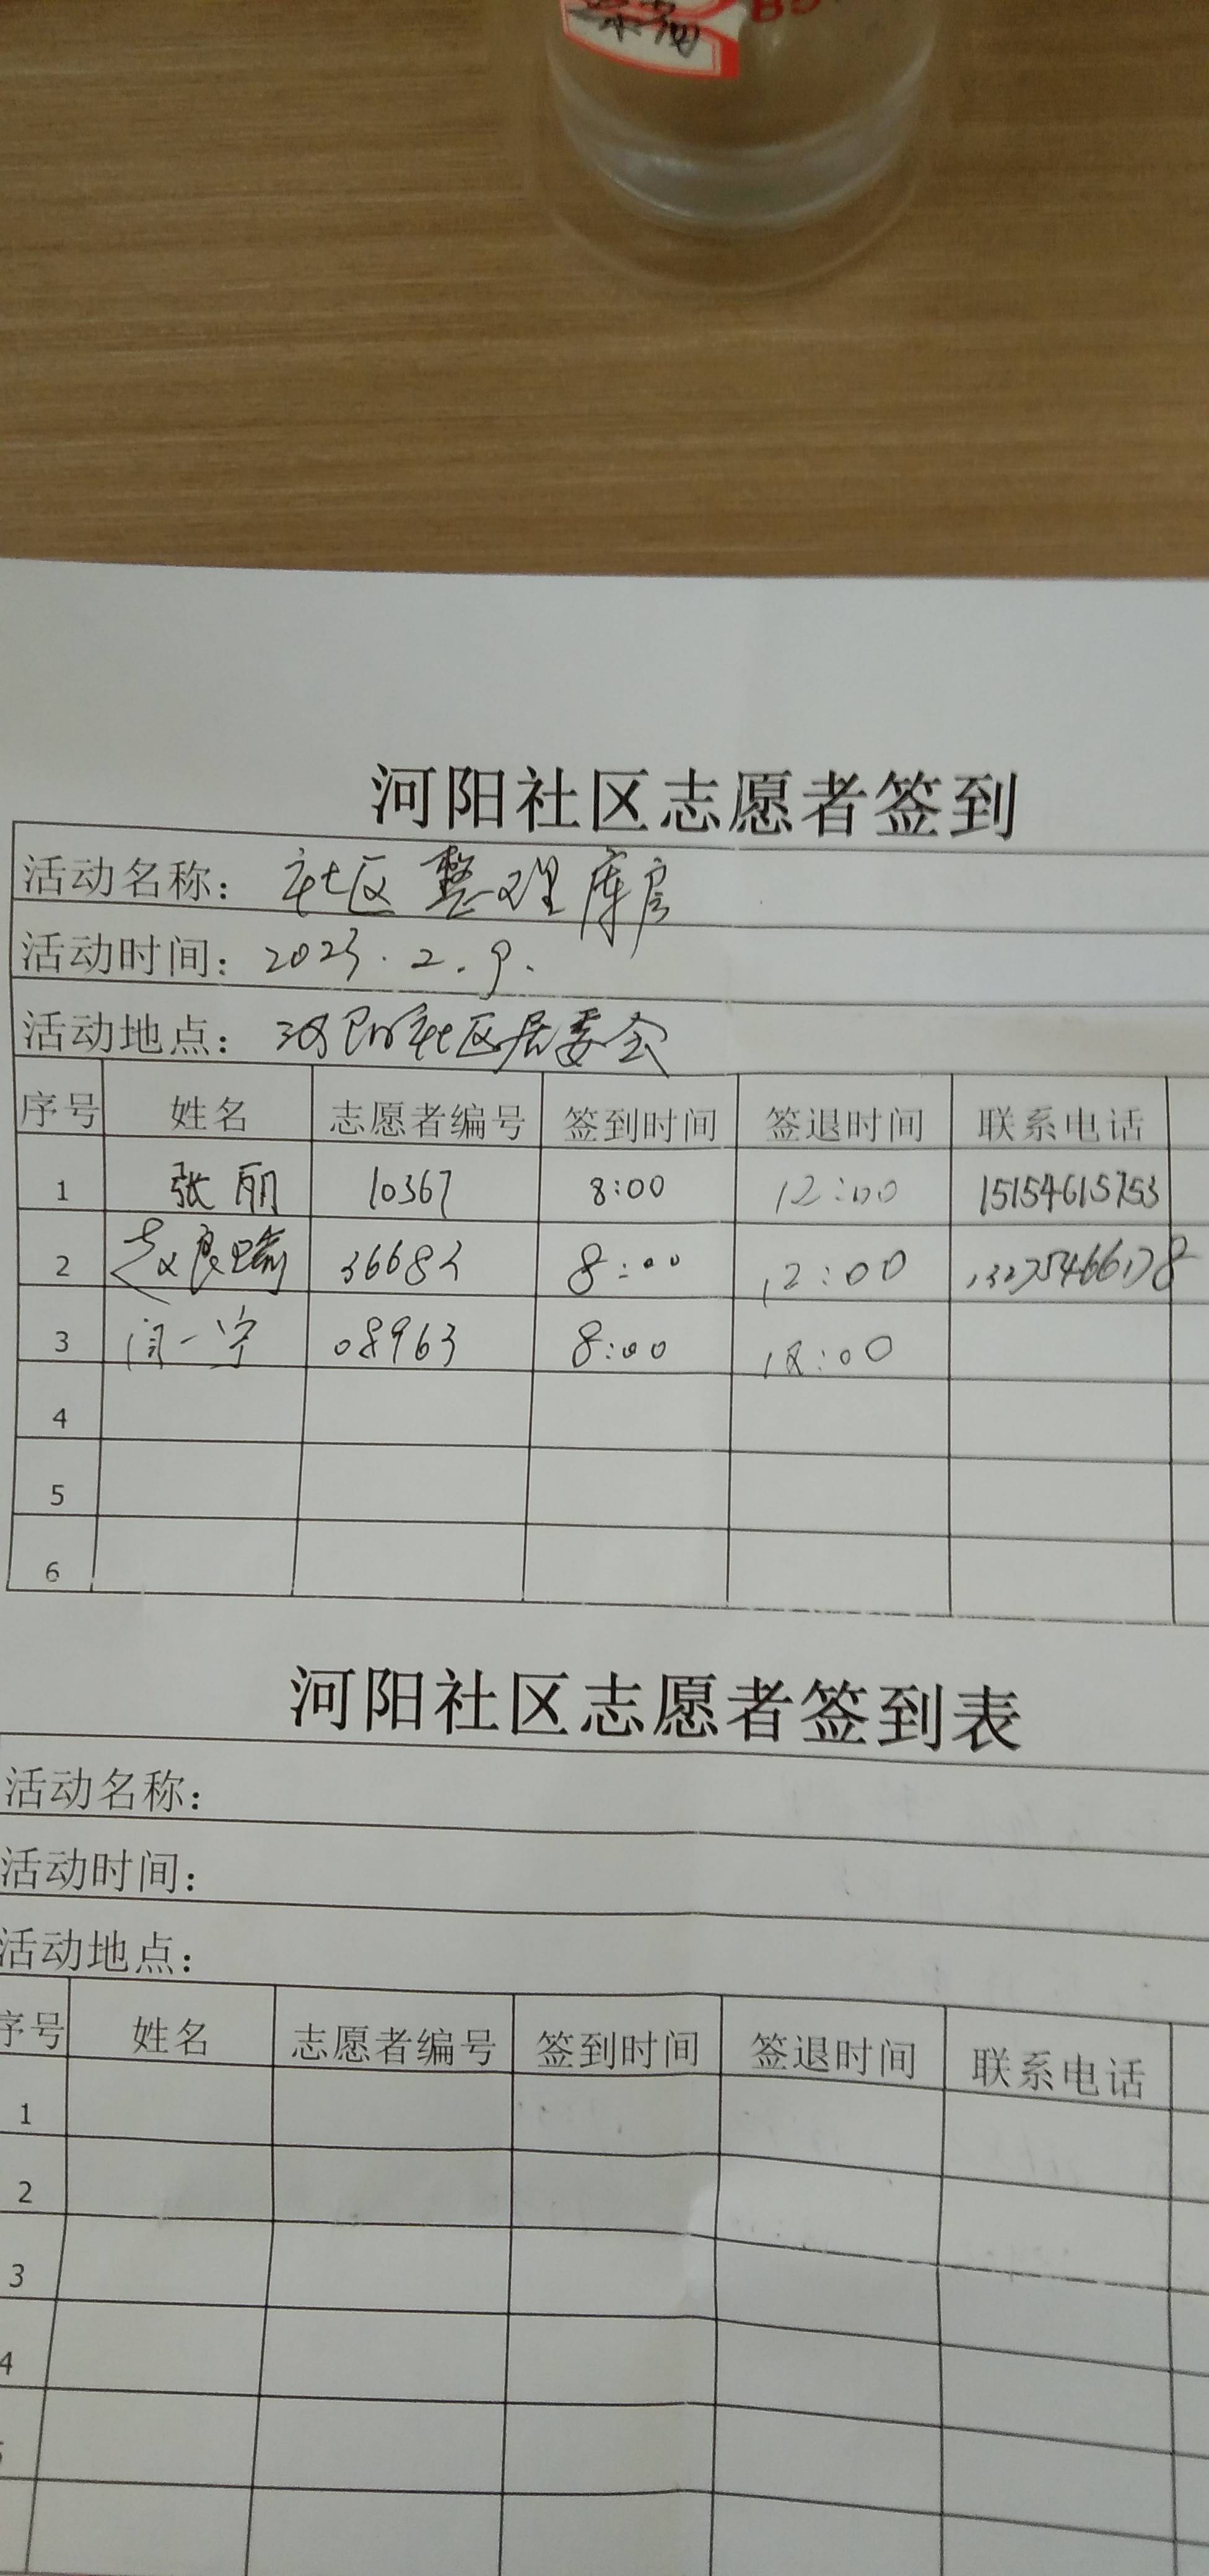 河阳社区志愿者签到
活动名称： 社区整理库房
活动时间： 2023.2.9.
活动地点： 河阳社区居委会
序号 姓名 志愿者编号 签到时间 签退时间 联系电话
1 张丽 10367 8:00 12:00 15154615753
2 赵良瑜 36683 8:00 12:00
3 闫一宁 08963 8:00 :00
4
5
6
河阳社区志愿者签到表
活动名称：
活动时间：
活动地点：
序号 姓名 志愿者编号 签到时间 签退时间 联系电话
1
2
3
4